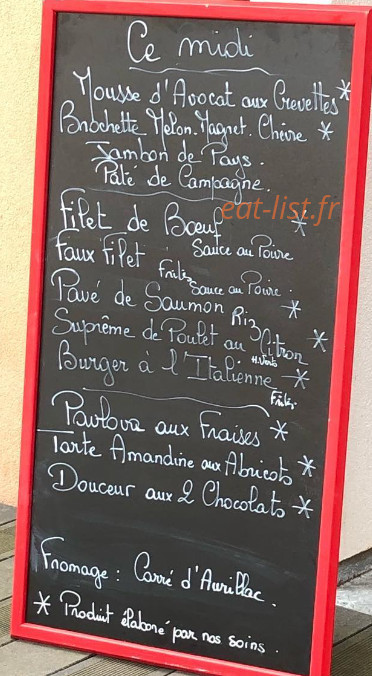 Ce midi
Mousse d'Avocat aux Crevettes *
Brochette Melon. Magret. Chèvre *
Jambon de Pays.
Pâté de Campagne.
eat-list.fr
Filet de Bœuf *
Sauce au Poivre
Faux Filet
Frites Sauce au Poivre.
Pavé de Saumon Riz *
Suprême de Poulet au Citron *
H.Verts
Burger à l'Italienne *
Frites
Pavlova aux Fraises *
Tarte Amandine aux Abricots *
Douceur aux 2 Chocolats *
Fromage : Carré d'Aurillac.
* Produit élaboré par nos soins.